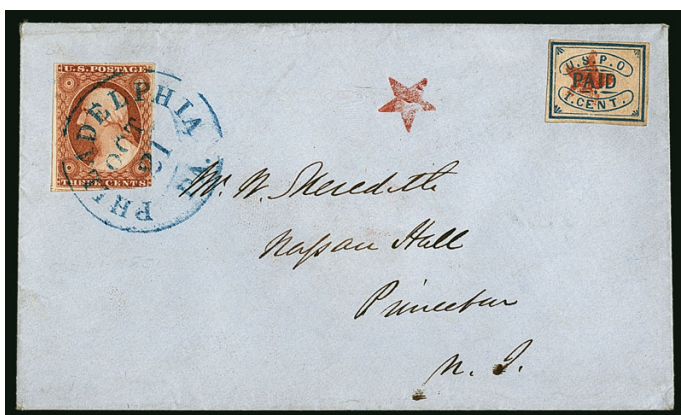 U.S. POSTAGE
THREE CENTS
PHILADELPHIA Pa.
OCT
21
U.S.P.O
PAID
1.CENT.
Mr. W. Meredith
Nassau Hall
Princeton
N. J.